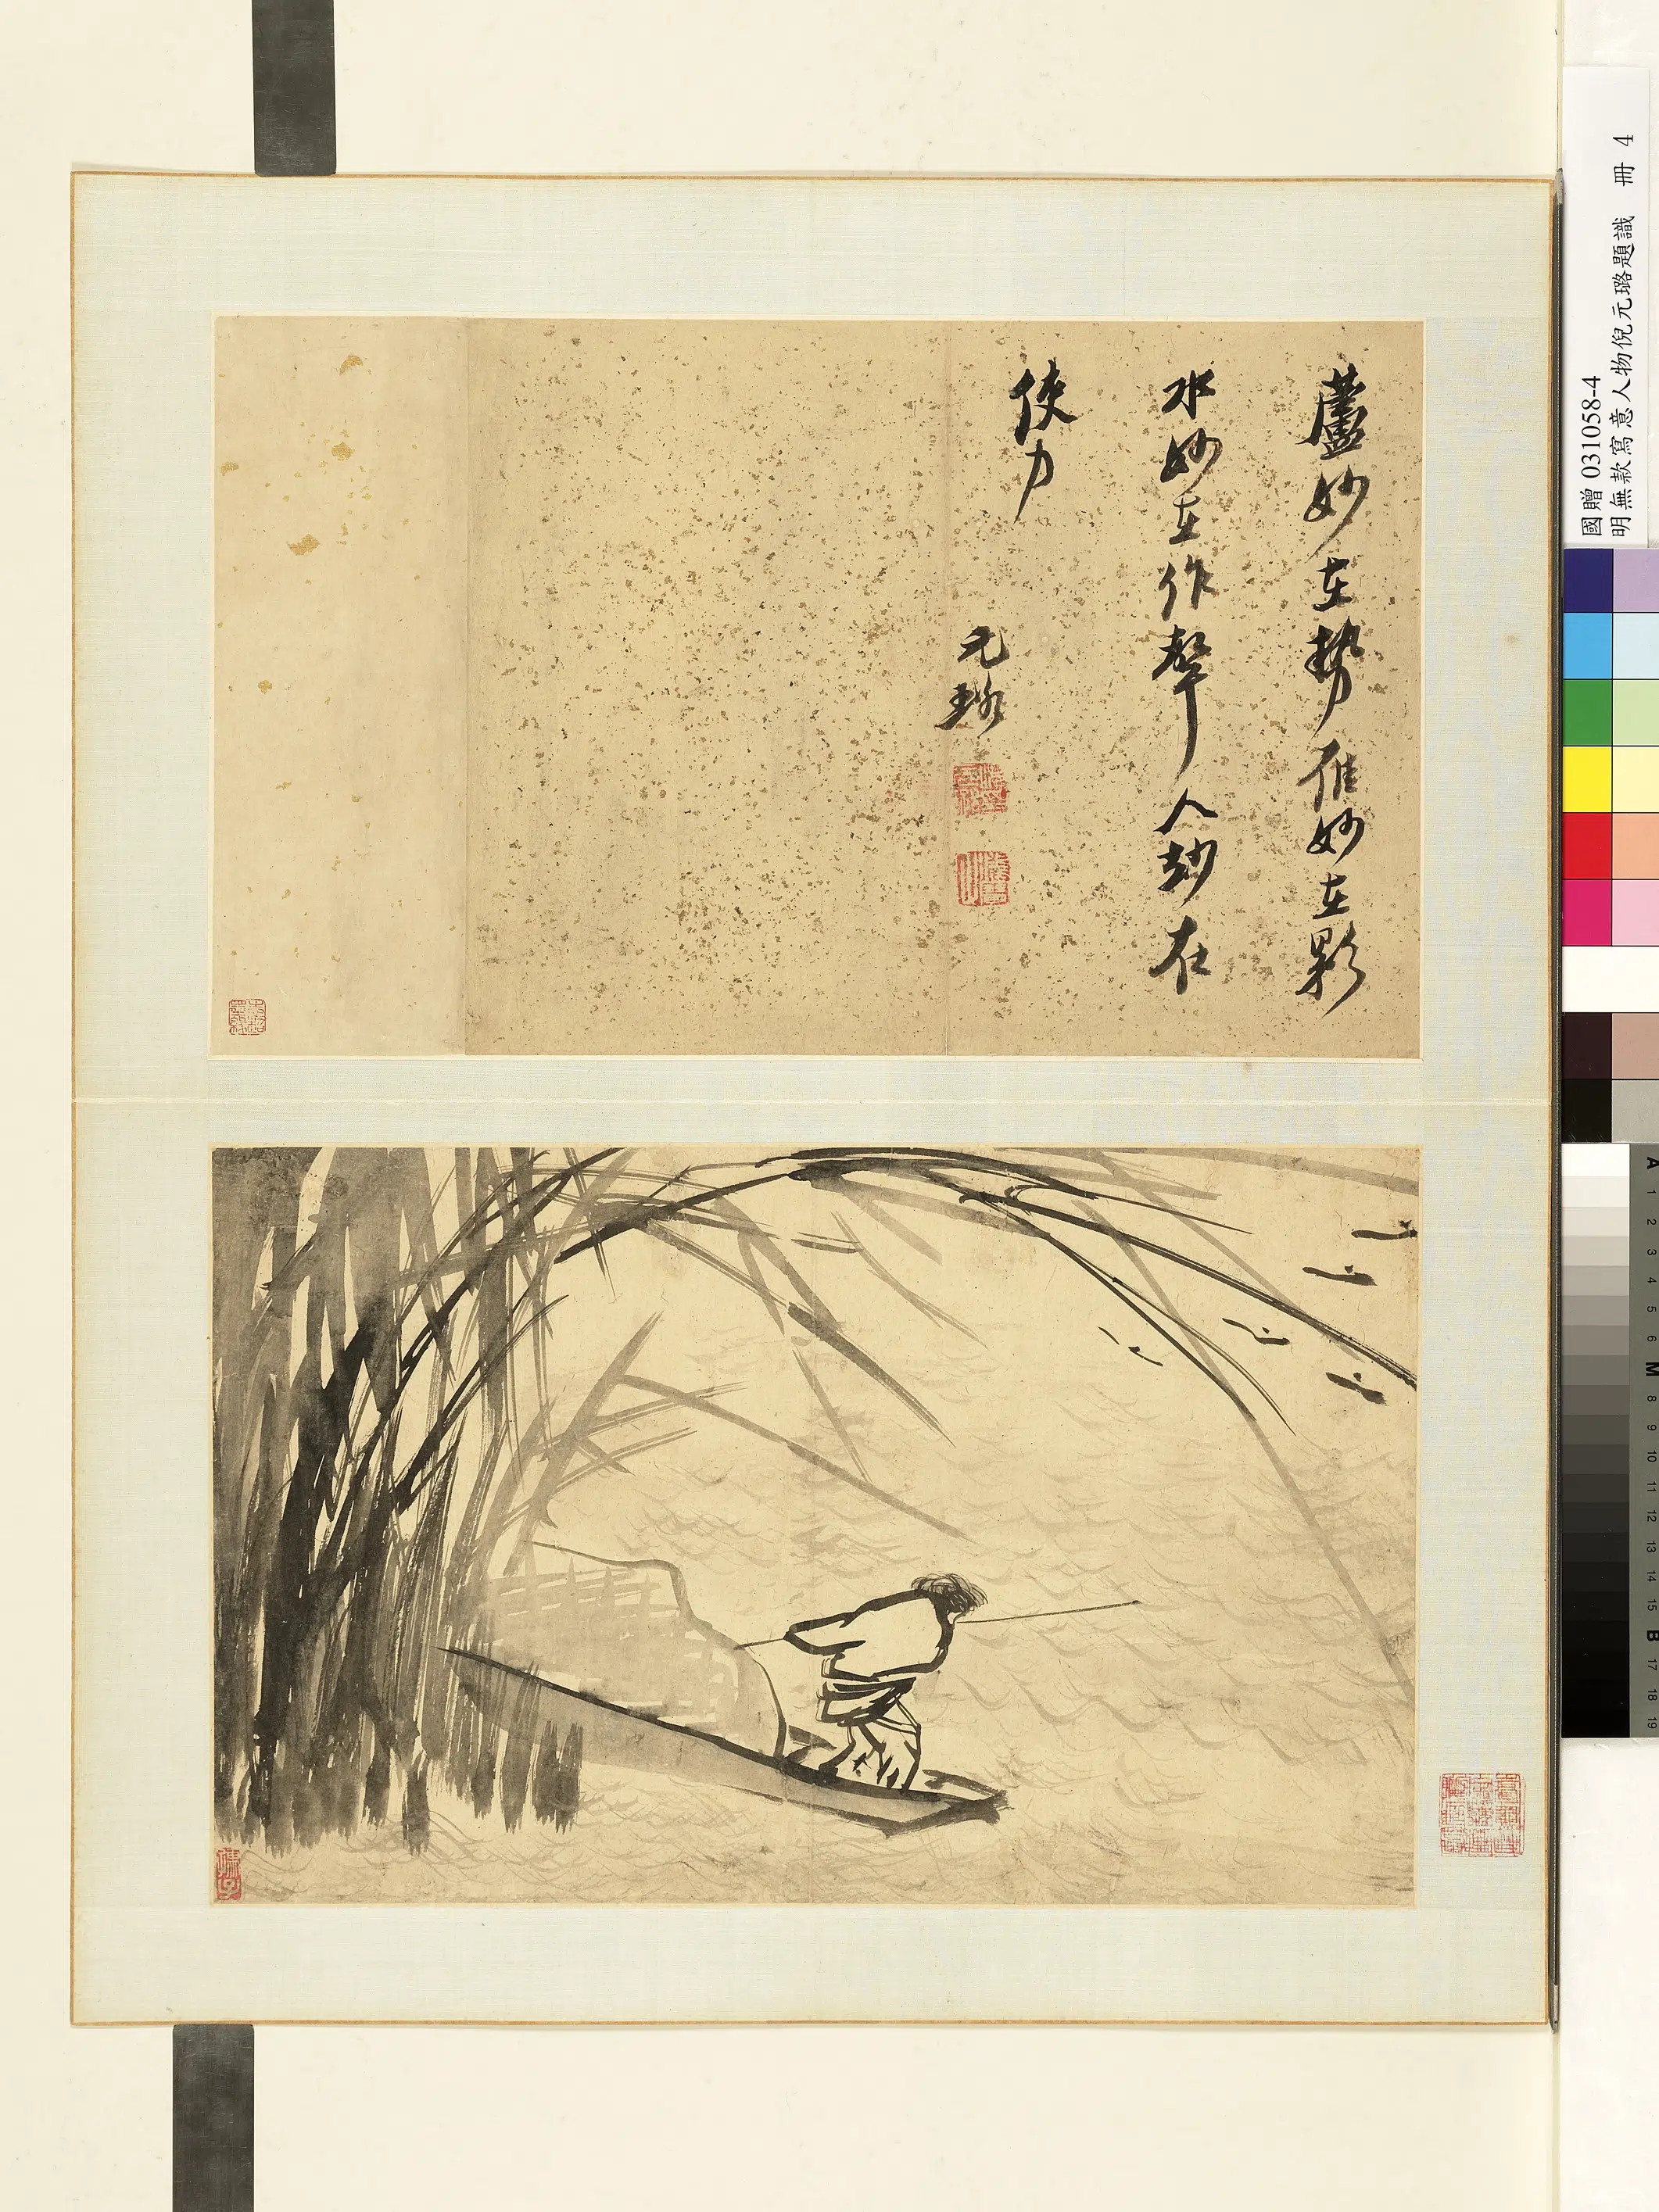 蘆妙在勢雁妙在影
水妙在作聲人妙在
使力
元璐
國贈 031058-4
明無款寫意人物倪元璐題識 冊 4
A
1
2
3
4
5
6
M
8
9
10
11
12
13
14
15
B
17
18
19